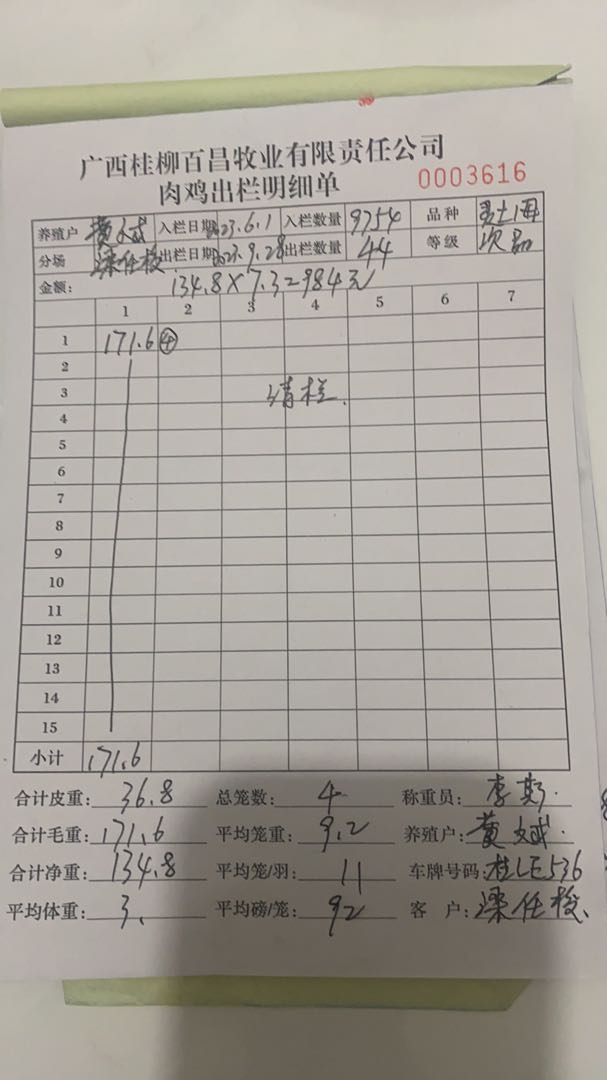 广西桂柳百昌牧业有限责任公司
肉鸡出栏明细单 0003616
养殖户 黄文斌 入栏日期 2023.6.1 入栏数量 9754 品种
分场 梁任校 出栏日期 2023.9.28 出栏数量 44 等级 次品
金额: 134.8×7.3=984元
1 2 3 4 5 6 7
1 171.6 ④
2
3 清栏.
4
5
6
7
8
9
10
11
12
13
14
15
小计 171.6
合计皮重: 36.8 总笼数: 4 称重员: 李
合计毛重: 171.6 平均笼重: 9.2 养殖户: 黄文斌.
合计净重: 134.8 平均笼/羽: 11 车牌号码: 桂LE536
平均体重: 3. 平均磅/笼: 92 客 户: 梁任校.